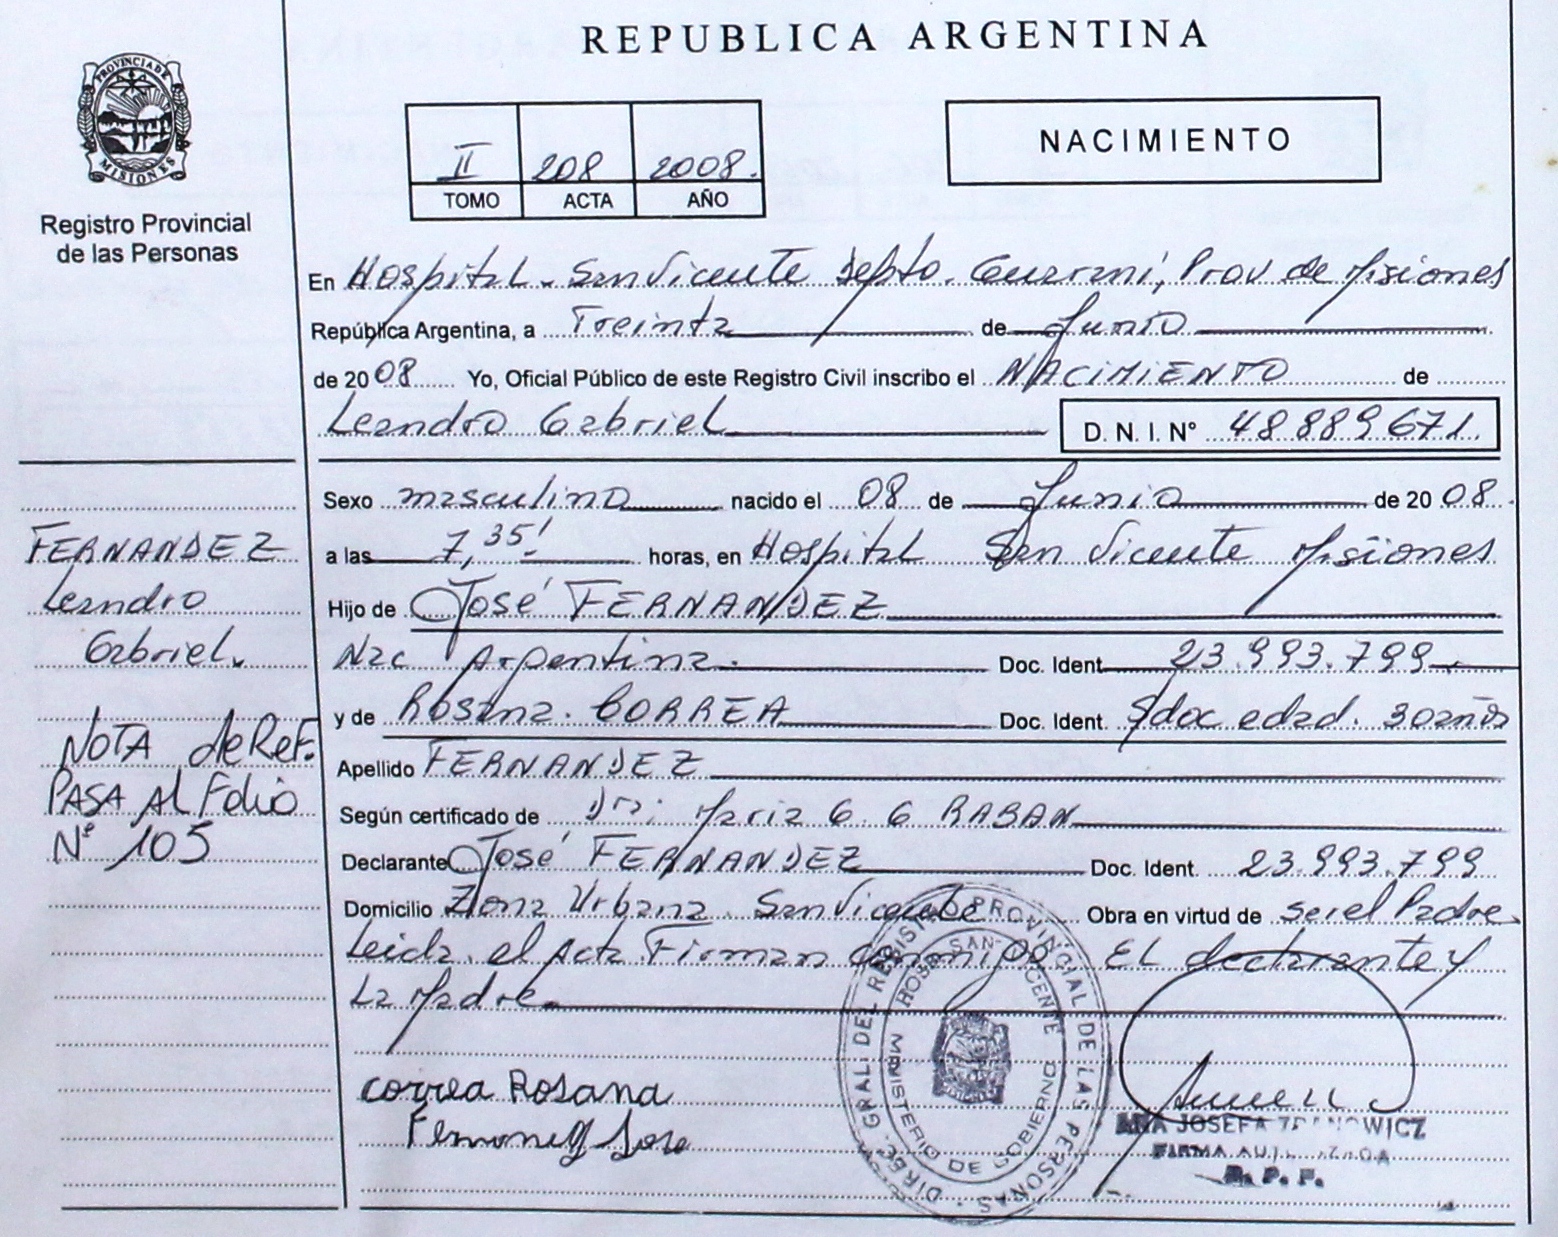 REPUBLICA ARGENTINA
PROVINCIA DE
MISIONES
Registro Provincial
de las Personas
II 208 2008.
TOMO ACTA AÑO
NACIMIENTO
En Hospital. San Vicente Depto. Guaraní, Prov de Misiones
República Argentina, a Treinta de Junio
de 2008 Yo, Oficial Público de este Registro Civil inscribo el NACIMIENTO de
Leandro Gabriel D. N. I. Nº 48889671.
Sexo masculino nacido el 08 de Junio de 2008.
a las 7,35' horas, en Hospital San Vicente Misiones
Hijo de José FERNANDEZ
Nac Argentina. Doc. Ident. 23.993.799
y de Rosana. CORREA Doc. Ident. S/doc edad. 30 años
Apellido FERNANDEZ
Según certificado de Dra: Maria G. G RABAN
Declarante José FERNANDEZ Doc. Ident. 23.993.799
Domicilio Zona Urbana. San Vicente Obra en virtud de ser el Padre.
Leida. el Acta. Firman conmigo EL declarante y
La Madre.
FERNANDEZ
Leandro
Gabriel.
NOTA de Ref.
PASA Al Folio
Nº 105
correa Rosana
Jose
DIREC. GRAL. DEL REGISTRO PROVINCIAL DE LAS PERSONAS
HOSP. SAN VICENTE
MINISTERIO DE GOBIERNO
ANA JOSEFA
FIRMA
R. P. P.